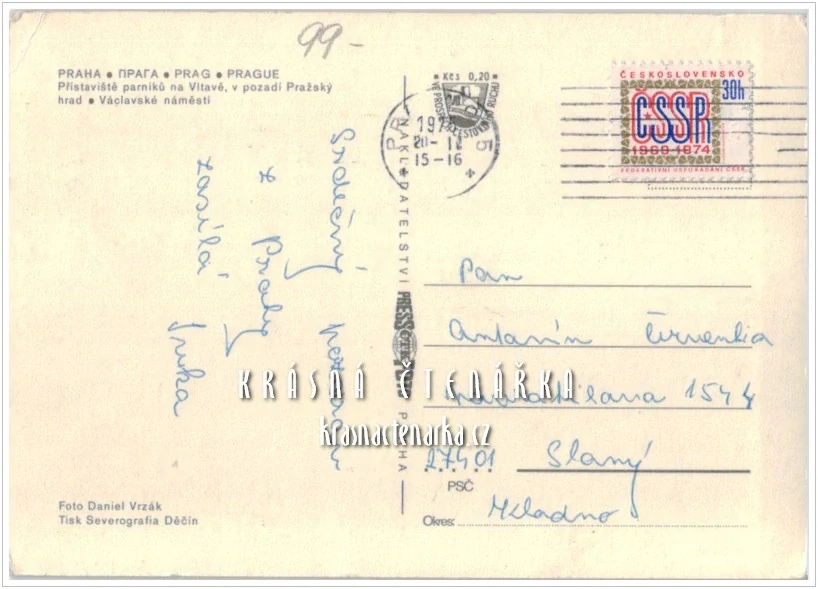 99-
PRAHA ● ПРАГА ● PRAG ● PRAGUE
Přístaviště parníků na Vltavě, v pozadí Pražský
hrad ● Václavské náměstí
Kčs 0,20
20-12
15-16
ČESKOSLOVENSKO
30h
ČSSR
1969-1974
FEDERATIVNÍ USPOŘÁDÁNÍ ČSSR
Srdečný pozdrav
z Prahy
zasílá
Jirka
NAKLADATELSTVÍ PRESSFOTO PRAHA
Pan
Antonín Červenka
1544
27401 Slaný
PSČ
Okres: Kladno
KRÁSNÁ ČTENÁŘKA
krasnactenarka.cz
Foto Daniel Vrzák
Tisk Severografia Děčín